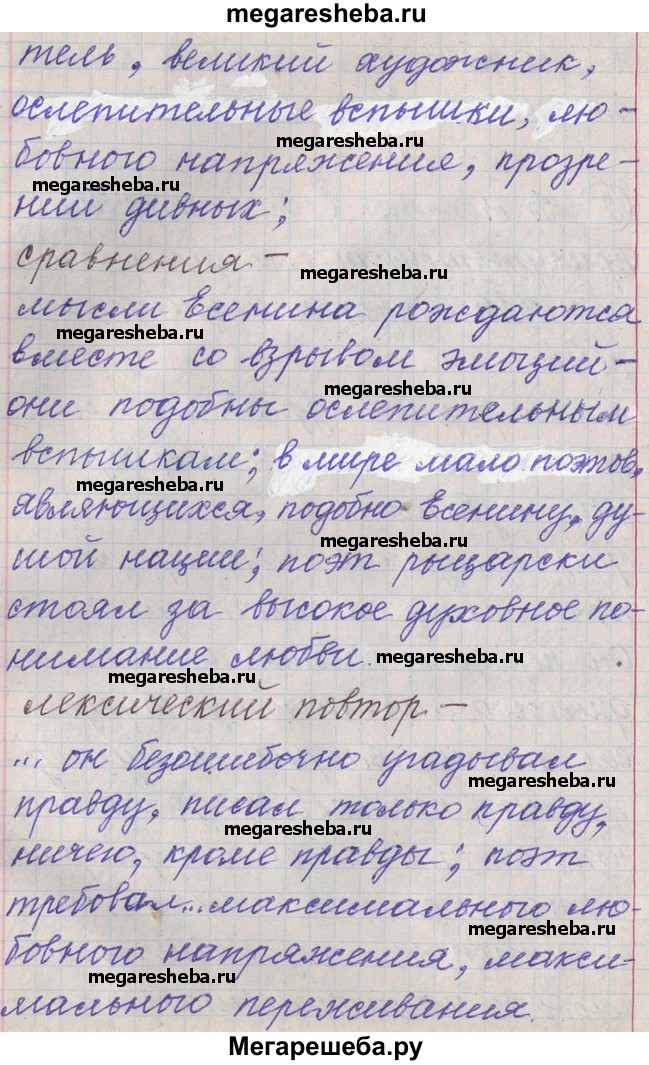 megaresheba.ru
тель, великий художник,
ослепительные вспышки, лю-
megaresheba.ru
бовного напряжения, прозре-
megaresheba.ru
ний дивных;
сравнения –
megaresheba.ru
мысли Есенина рождаются
megaresheba.ru
вместе со взрывом эмоций –
megaresheba.ru
они подобны ослепительным
вспышкам; в мире мало поэтов,
megaresheba.ru
являющихся, подобно Есенину, ду-
megaresheba.ru
шой нации; поэт рыцарски
стоял за высокое духовное по-
нимание любви.
megaresheba.ru
megaresheba.ru
лексический повтор –
... он безошибочно угадывал
megaresheba.ru
правду, писал только правду,
megaresheba.ru
ничего, кроме правды; поэт
требовал... максимального лю-
megaresheba.ru
бовного напряжения, макси-
megaresheba.ru
мального переживания.
Мегарешеба.ру